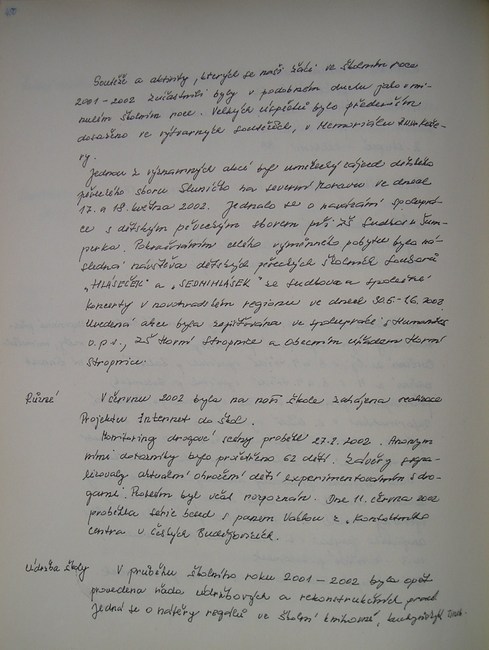 Soutěže a aktivity, kterých se naši žáci ve školním roce
2001 - 2002 zúčastnili byly v podobném duchu jako v mi-
nulém školním roce. Velkých úspěchů bylo především
dosaženo ve výtvarných soutěžích, v Memoriálu
ry.
Jednou z významných akcí byl umělecký zájezd dětského
pěveckého sboru Sluníčko na severní Moravu ve dnech
17. a 18. května 2002. Jednalo se o navázání spoluprá-
ce s dětským pěveckým sborem při ZŠ Sudkov u Šum-
perka. Pokračováním celého výměnného pobytu byla ná-
sledná návštěva dětských pěveckých školních souborů
"HLÁSEČEK" a "SEDMIHLÁSEK" ze Sudkova a společné
koncerty v novohradském regionu ve dnech
Uvedená akce byla zajišťována ve spolupráci s Humanitas
o.p.s., ZŠ Horní Stropnice a Obecním úřadem Horní
Stropnice.
Různé V červnu 2002 byla na naší škole zahájena realizace
Projektu Internet do škol.
Monitoring drogové scény proběhl 27.2. 2002. Anonym
ními dotazníky bylo prošetřeno 62 dětí. Závěry
aktuální ohrožení dětí experimentováním s dro-
gami. Problém byl včas rozpoznán. Dne 11. června 2002
proběhla série besed s panem z "Kontaktního
centra v Českých Budějovicích.
Údržba školy V průběhu školního roku 2001 - 2002 byla opět
provedena řada údržbových a rekonstrukčních prací.
Jedná se o nátěry regálů ve školní knihovně,